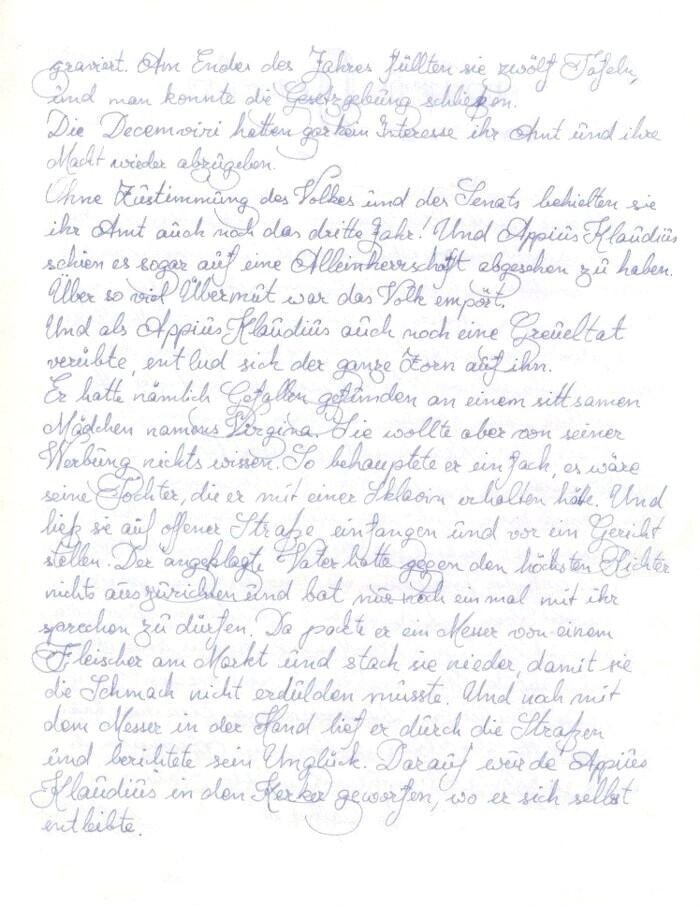 graviert. Am Ender des Jahres füllten sie zwölf Tafeln,
und man konnte die Gesetzgebung schließen.
Die Decemviri hatten gar kein Interesse ihr Amt und ihre
Macht wieder abzugeben.
Ohne Zustimmung des Volkes und des Senats behielten sie
ihr Amt auch noch das dritte Jahr! Und Appius Klaudius
schien es sogar auf eine Alleinherrschaft abgesehen zu haben.
Über so viel Übermut war das Volk empört.
Und als Appius Klaudius auch noch eine Greueltat
verübte, entlud sich der ganze Zorn auf ihn.
Er hatte nämlich Gefallen gefunden an einem sittsamen
Mädchen namens Virgina. Sie wollte aber von seiner
Werbung nichts wissen. So behauptete er einfach, es wäre
seine Tochter, die er mit einer Sklavin erhalten hätte. Und
ließ sie auf offener Straße einfangen und vor ein Gericht
stellen. Der angeklagte Vater hatte gegen den höchsten Richter
nichts auszurichten und bat nur noch einmal mit ihr
sprechen zu dürfen. Da packte er ein Messer von einem
Fleischer am Markt und stach sie nieder, damit sie
die Schmach nicht erdulden müsste. Und noch mit
dem Messer in der Hand lief er durch die Straßen
und berichtete sein Unglück. Darauf wurde Appius
Klaudius in den Kerker geworfen, wo er sich selbst
entleibte.